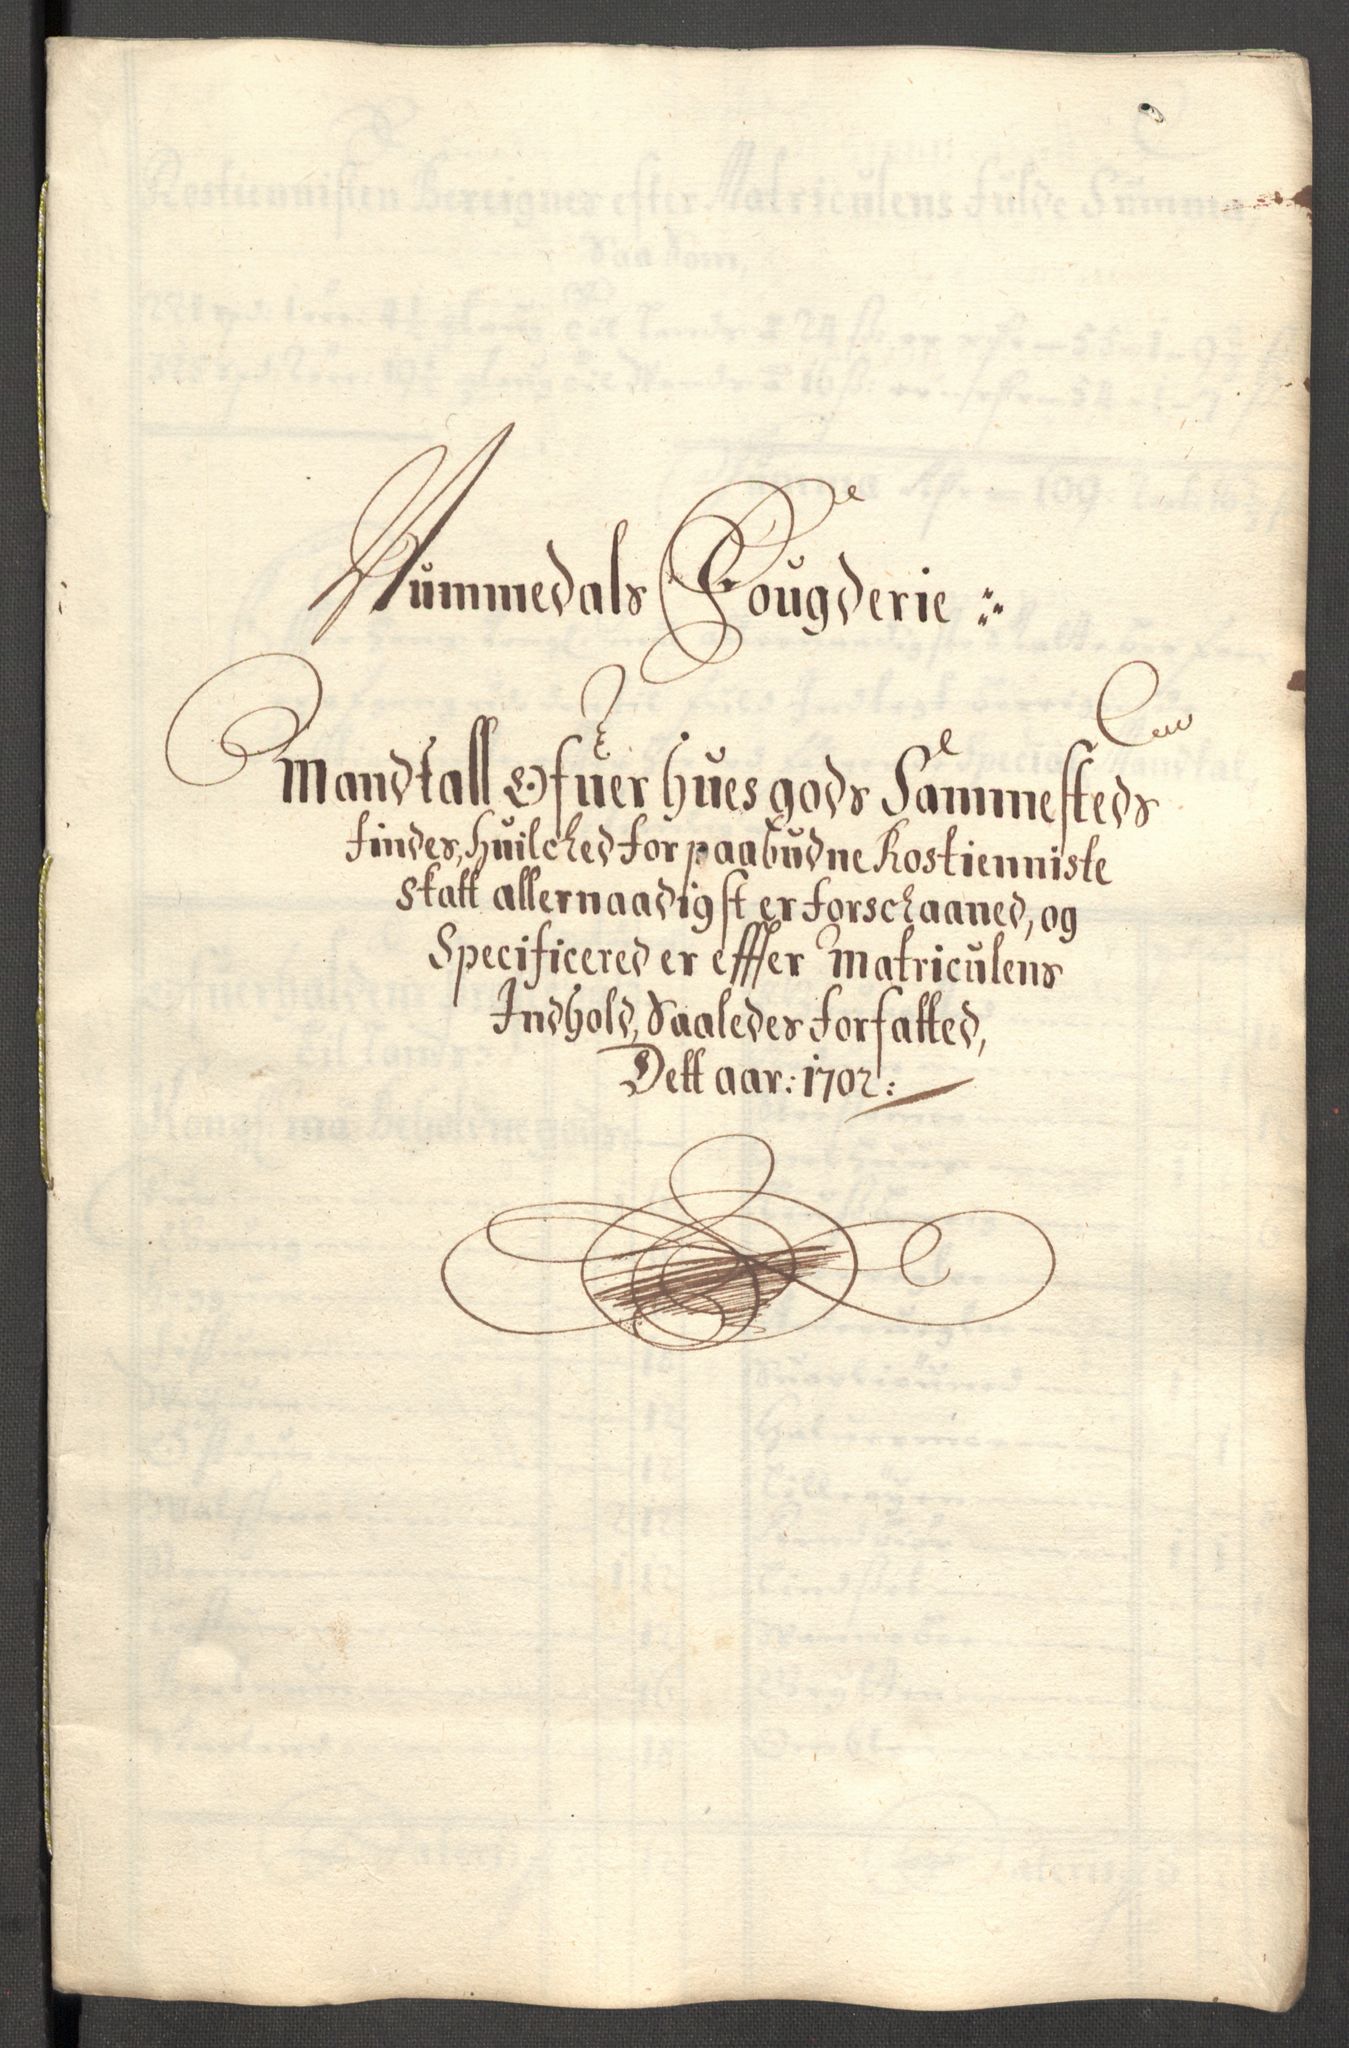 Nummedals Fougderie
Mandtall Ofuer hues gods Sammesteds
findes, huilcked for paabudne Rostienniste
skatt allernaadigst er forschaaned, og
Specificered er effter Matriculens
Indhold, Saaledes forfatted,
Dett aar: 1702: